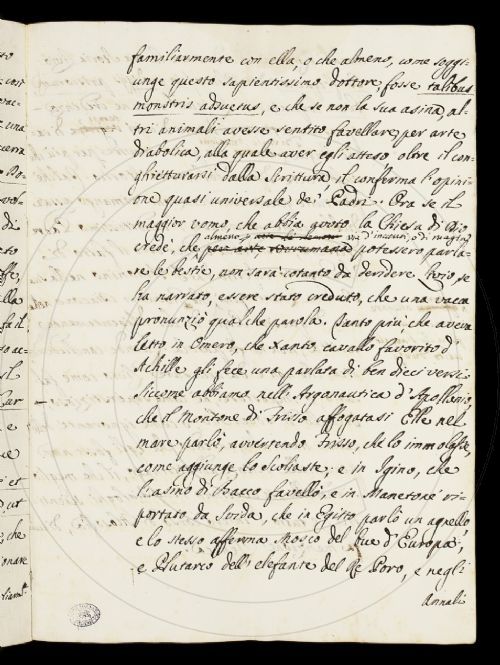 familiarmente con ella, o che almeno, come soggi-
unge questo sapientissimo dottore, fosse talibus
monstris adsuetus, e che se non la sua asina, al-
tri animali avesse sentito favellare per arte
diabolica, alla quale aver egli atteso oltre il con-
ghietturarsi dalla Scrittura, il conferma l'opini-
one quasi universale de' Padri. Ora se il
maggior uomo, che abbia avuto la Chiesa di Dio
almeno, via d'incanti, o di magia
crede, che potessero parla-
re le bestie, non sarà cotanto da deridere Livio, se
ha narrato, essere stato creduto, che una vacca
pronunziò qualche parola. Tanto più, che aveva
letto in Omero, che Xanto cavallo favorito d'
Achille gli fece una parlata di ben dieci versi.
Siccome abbiamo nell'Argonautica d'Apollonio
che il Montone di Frisso affogatasi Elle nel
mare parlò, avvertendo Frisso, che lo immolasse,
come aggiunge lo Scoliaste; e in Igino, che
l'asino di Bacco favellò, e in Manetone ri-
portato da Svida, che in Egitto parlò un agnello
e lo stesso afferma Mosco del bue d'Europa,
e Plutarco dell'elefante del Re Poro, e negl'
Annali